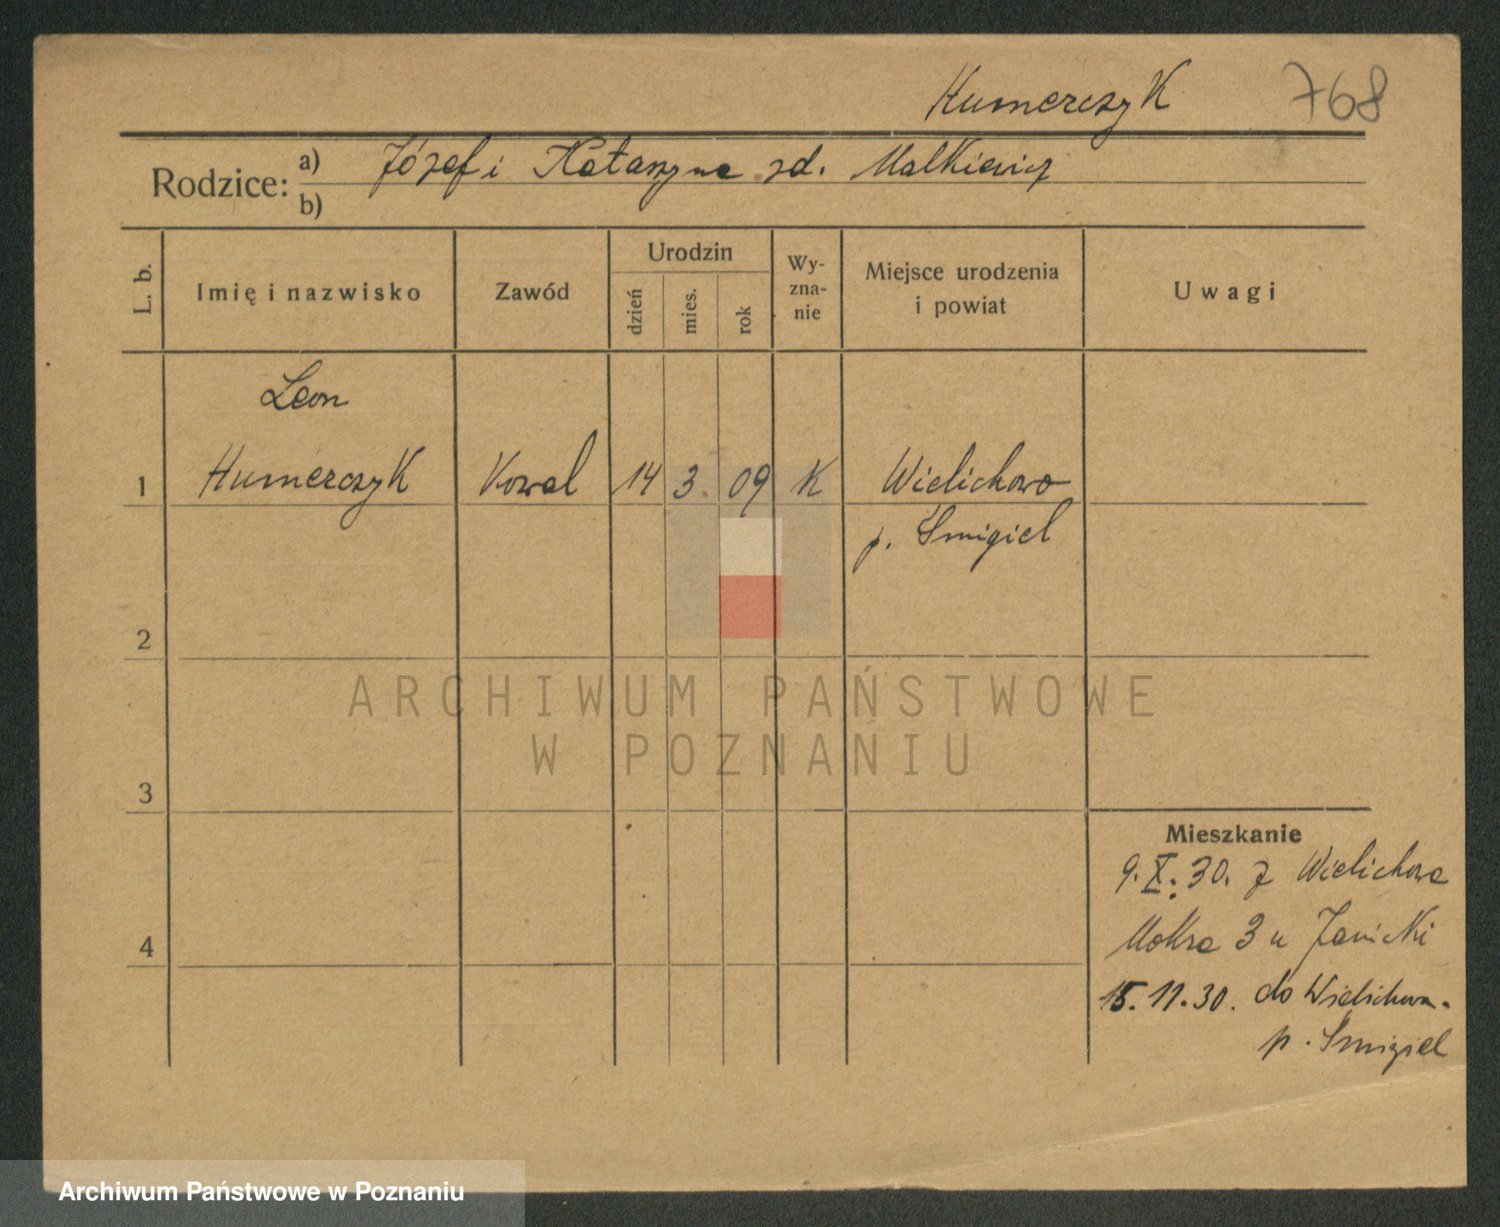 Humerczyk 768
Rodzice: a) Józef i Katarzyna zd. Malkiewicz
b)
L. b.
Imię i nazwisko
Zawód
Urodzin
dzień
mies.
rok
Wy-
zna-
nie
Miejsce urodzenia
i powiat
Uwagi
Leon
1 Humerczyk Kowal 14 3. 09 K Wielichowo
p. Śmigiel
2
ARCHIWUM PAŃSTWOWE
W POZNANIU
3
Mieszkanie
9.X.30. z Wielichowa
Mokra 3 u Janicki
4
15.11.30. do Wielichowa.
p. Śmigiel
Archiwum Państwowe w Poznaniu